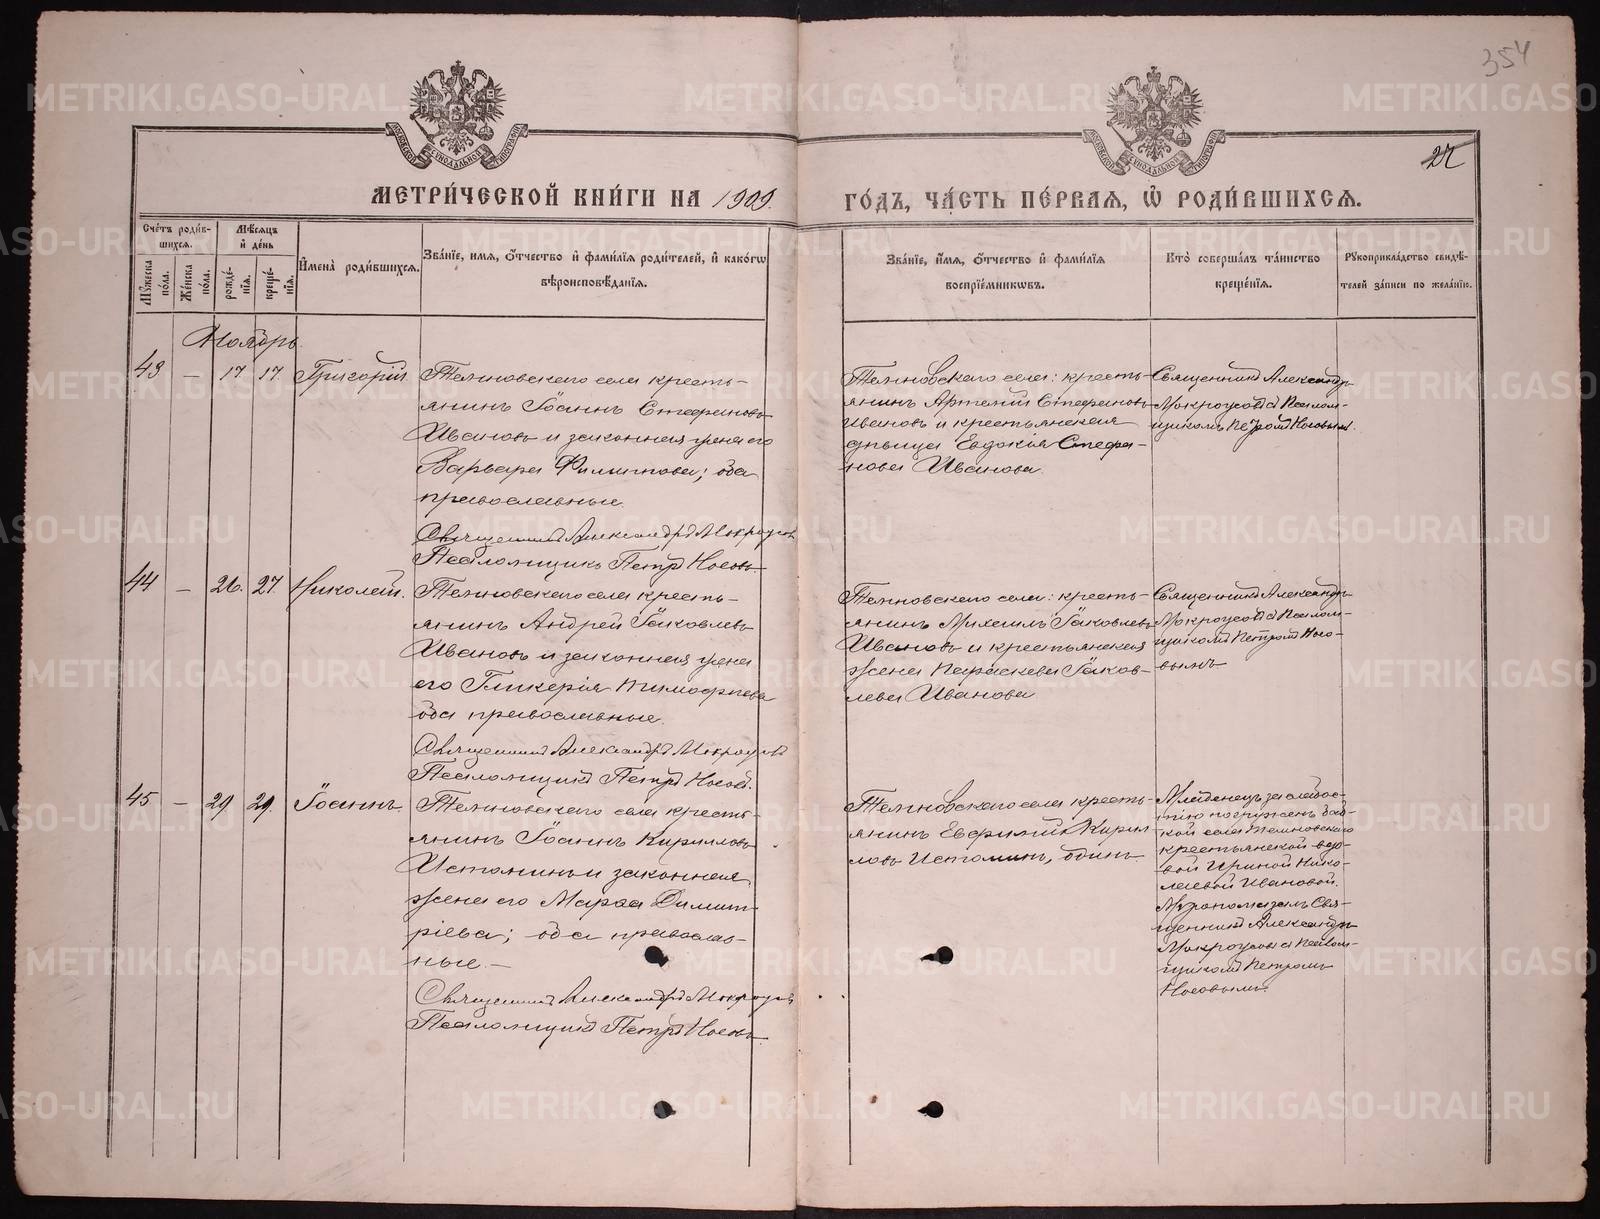 354
27
МЕТРИ́ЧЕСКОЙ КНИ́ГИ НА 1909.
ГО́ДЪ, ЧА́СТЬ ПЕ́РВАЯ, Ѡ РОДИ́ВШИХСЯ.
Сче́тъ роди́в-
шихся.
Му́жеска
по́ла.
Же́нска
по́ла.
Мѣ́сяцъ
и де́нь
рожде́-
нїя.
креще́-
нїя.
И҆мена̀ роди́вшихся.
Зва́нїе, и́мя, ѻ҆́тчество и҆ фами́лїя роди́телей, и҆ како́гѡ
вѣроисповѣ́данїя.
Зва́нїе, и҆́мя, ѻ҆́тчество и҆ фами́лїя
воспрїе́мникѡвъ.
Кто̀ соверша́лъ та́инство
креще́нїя.
Рꙋкоприкла́дство свидѣ́-
телей за́писи по жела́нїю.
Ноябрь
43 — 17 17 Григорій
Темновскаго села кресть-
янинъ Іоаннъ Стефановъ
Ивановъ и законная жена его
Варвара Филиппова; оба
православные.
Священникъ Александръ Мокроусовъ
Псаломщикъ Петръ Носовъ.
Темновскаго села: кресть-
янинъ Артемій Стефановъ
Ивановъ и крестьянская
дѣвица Евдокія Стефа-
нова Иванова.
Священникъ Александръ
Мокроусовъ съ Псалом-
щикомъ Петромъ Носовымъ.
44 — 26. 27. Николай.
Темновскаго села кресть-
янинъ Андрей Іаковлевъ
Ивановъ и законная жена
его Гликерія Тимофеева
оба православные.
Священникъ Александръ Мокроусовъ
Псаломщикъ Петръ Носовъ.
Темновскаго села: кресть-
янинъ Михаилъ Іаковлевъ
Ивановъ и крестьянская
жена Параскева Іаков-
лева Иванова
Священникъ Александръ
Мокроусовъ съ Псалом-
щикомъ Петромъ Носо-
вымъ
45 — 29 29. Іоаннъ.
Темновскаго села кресть-
янинъ Іоаннъ Кирилловъ
Истоминъ и законная
жена его Марфа Димит-
ріева; оба православ-
ные. —
Священникъ Александръ Мокроусовъ
Псаломщикъ Петръ Носовъ.
Темновскаго села кресть-
янинъ Евфимій Кирил-
ловъ Истоминъ, одинъ.
Младенецъ за слабос-
тію погруженъ баб-
кой села Темновскаго
крестьянской вдо-
вой Ириной Нико-
лаевой Ивановой.
Мѵропомазалъ Свя-
щенникъ Александръ
Мокроусовъ съ Псалом-
щикомъ Петромъ
Носовымъ.